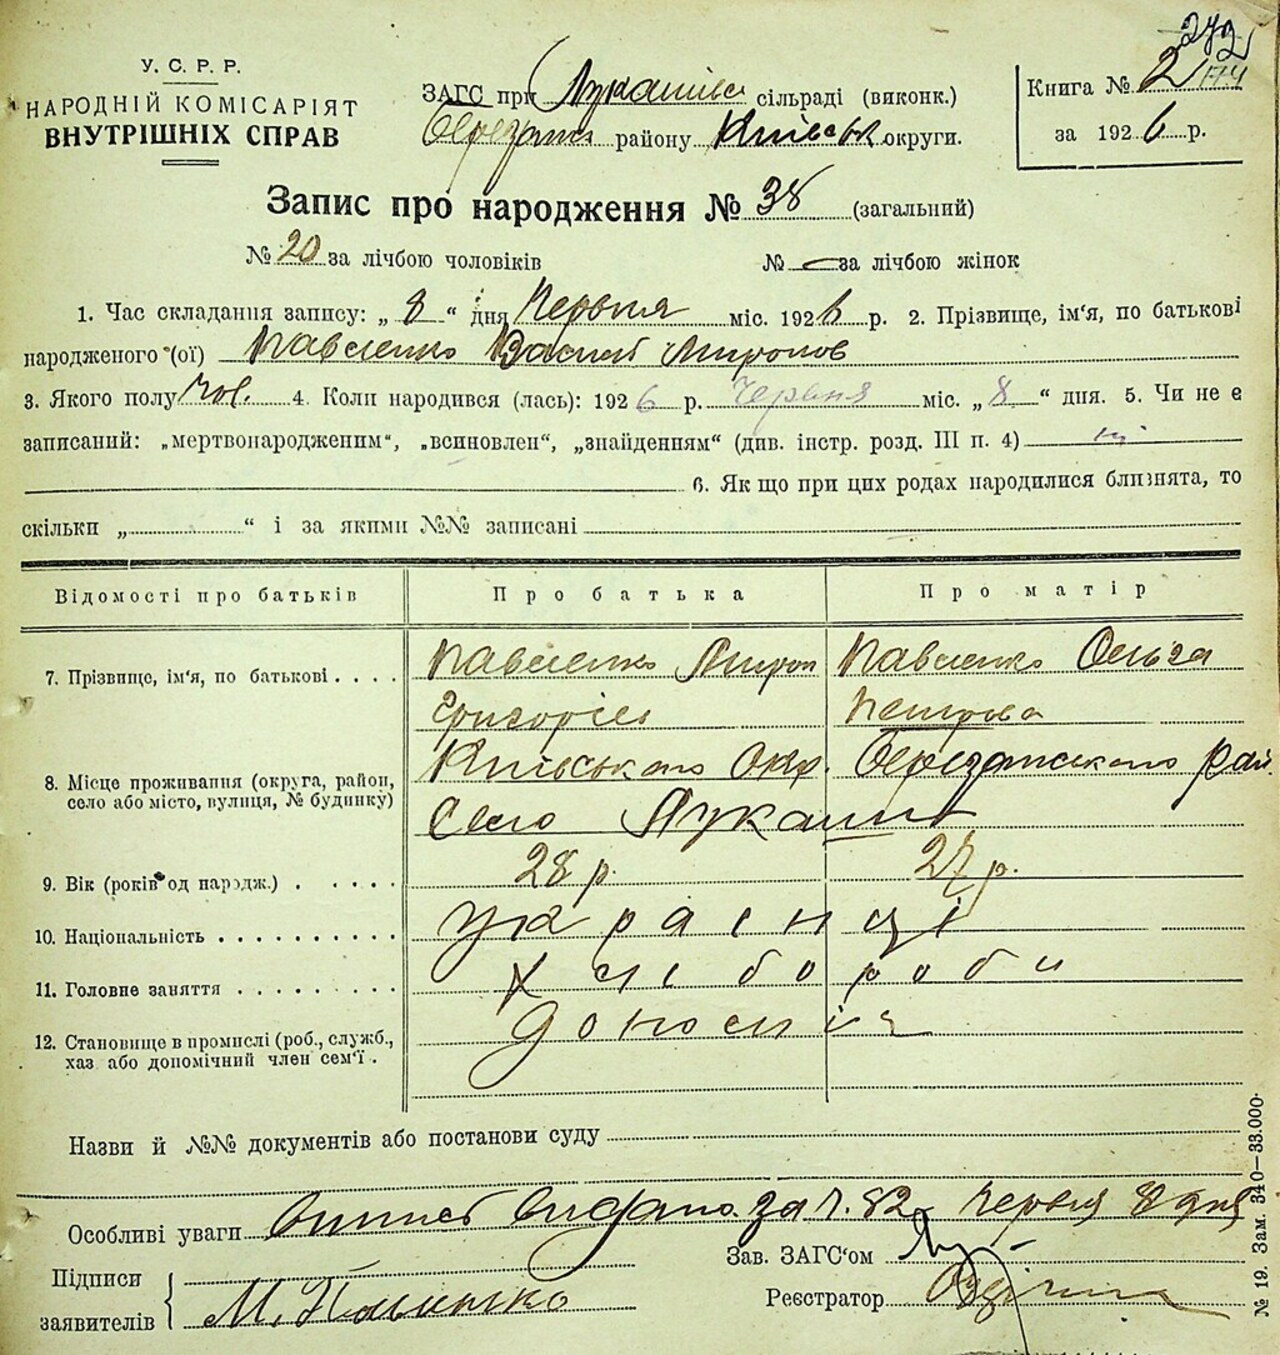 272
У. С. Р. Р.
НАРОДНІЙ КОМІСАРІЯТ
ВНУТРІШНІХ СПРАВ
ЗАГС при Лукашівс сільраді (виконк.)
Березанс району Київськ округи.
Книга № 2
за 1926 р.
Запис про народження № 38 (загальний)
№ 20 за лічбою чоловіків № — за лічбою жінок
1. Час складання запису: „ 8 “ дня Червня міс. 1926 р. 2. Прізвище, ім'я, по батькові
народженого (ої) Павленко Василь Миронов
3. Якого полу Чов. 4. Коли народився (лась): 1926 р. Червня міс. „ 8 “ дня. 5. Чи не є
записаний: „мертвонародженим“, „всиновлен“, „знайденням“ (див. інстр. розд. III п. 4) ні
6. Як що при цих родах народилися близнята, то
скільки „ “ і за якими №№ записані
Відомості про батьків Про батька Про матір
7. Прізвище, ім'я, по батькові . . . . Павленко Мирон Павленко Ольга
Григоріев Петрова
8. Місце проживання (округа, район, Київського Окр. Березанського Рай.
село або місто, вулиця, № будинку) Село Лукаші
9. Вік (років од народж.) . . . . . 28 р. 27 р.
10. Національність . . . . . . . . . . українці
11. Головне заняття . . . . . . . . . хлібороби
12. Становище в промислі (роб., служб.,
хаз або допомічний член сем'ї .
Назви й №№ документів або постанови суду
Особливі уваги видано за ч. 82 Червня 8 дня
Зав. ЗАГС'ом
Підписи
заявителів М.
Реєстратор
№ 19. Зам. 340—33.000.